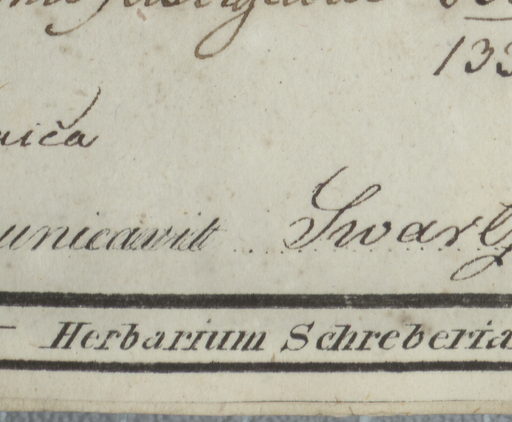 133
nica
unicavit Swartz
Herbarium Schreberia